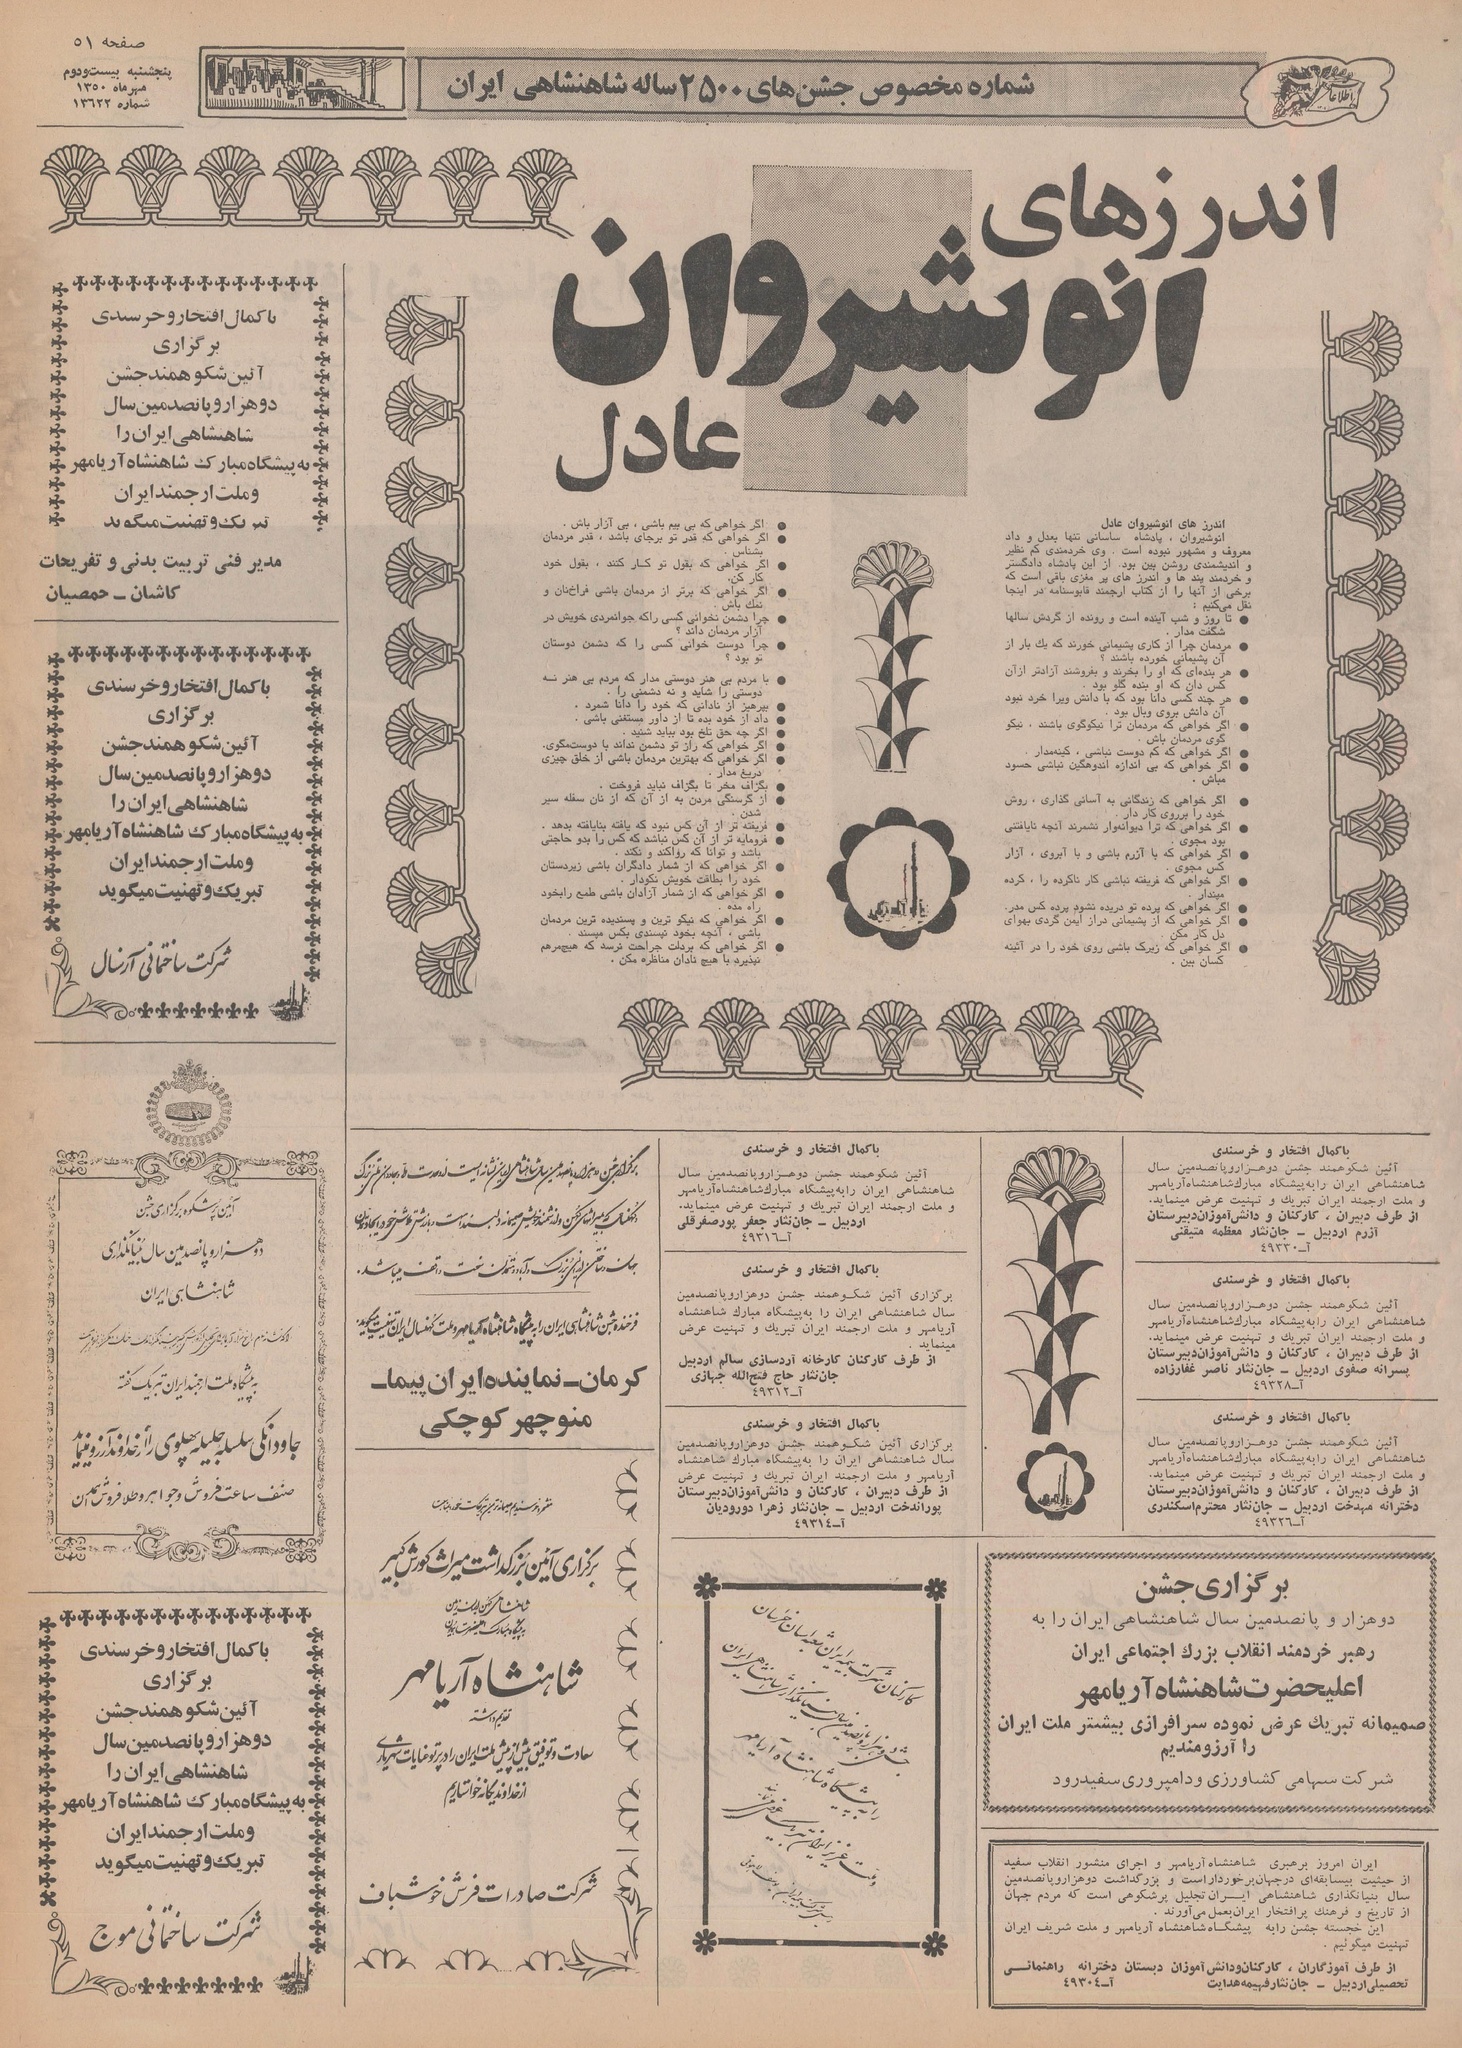 صفحه ۵۱
پنجشنبه بیست‌ودوم
مهرماه ۱۳۵۰
شماره ۱۳۶۲۲
شماره مخصوص جشن‌های ۲۵۰۰ ساله شاهنشاهی ایران
اطلاعات
اندرزهای
انوشیروان
عادل
اندرز های انوشیروان عادل
انوشیروان ، پادشاه ساسانی تنها بعدل و داد
معروف و مشهور نبوده است . وی خردمندی کم نظیر
و اندیشمندی روشن بین بود. از این پادشاه دادگستر
و خردمند پند ها و اندرز های پر مغزی باقی است که
برخی از آنها را از کتاب ارجمند قابوسنامه در اینجا
نقل می‌کنیم :
● تا روز و شب آینده است و رونده از گردش سالها
شگفت مدار .
● مردمان چرا از کاری پشیمانی خورند که یك بار از
آن پشیمانی خورده باشند ؟
● هر بنده‌ای که او را بخرند و بفروشند آزادتر ازآن
کس دان که او بنده گلو بود .
● هر چند کسی دانا بود که با دانش ویرا خرد نبود
آن دانش بروی وبال بود .
● اگر خواهی که مردمان ترا نیکوگوی باشند ، نیکو
گوی مردمان باش .
● اگر خواهی که کم دوست نباشی ، کینه‌مدار .
● اگر خواهی که بی اندازه اندوهگین نباشی حسود
مباش .
● اگر خواهی که زندگانی به آسانی گذاری ، روش
خود را برروی کار دار .
● اگر خواهی که ترا دیوانه‌وار نشمرند آنچه نایافتنی
بود مجوی .
● اگر خواهی که با آزرم باشی و با آبروی ، آزار
کس مجوی .
● اگر خواهی که فریفته نباشی کار ناکرده را ، کرده
مپندار .
● اگر خواهی که پرده تو دریده نشود پرده کس مدر.
● اگر خواهی که از پشیمانی دراز ایمن گردی بهوای
دل کار مکن .
● اگر خواهی که زیرک باشی روی خود را در آئینه
کسان بین .
● اگر خواهی که بی بیم باشی ، بی آزار باش .
● اگر خواهی که قدر تو برجای باشد ، قدر مردمان
بشناس .
● اگر خواهی که بقول تو کار کنند ، بقول خود
کار کن.
● اگر خواهی که برتر از مردمان باشی فراخ‌نان و
نمك باش .
● چرا دشمن نخوانی کسی راکه جوانمردی خویش در
آزار مردمان داند ؟
● چرا دوست خوانی کسی را که دشمن دوستان
تو بود ؟
● با مردم بی هنر دوستی مدار که مردم بی هنر نه
دوستی را شاید و نه دشمنی را .
● بپرهیز از نادانی که خود را دانا شمرد .
● داد از خود بده تا از داور مستغنی باشی .
● اگر چه حق تلخ بود بباید شنید .
● اگر خواهی که راز تو دشمن نداند با دوست‌مگوی.
● اگر خواهی که بهترین مردمان باشی از خلق چیزی
دریغ مدار .
● بگزاف مخر تا بگزاف نباید فروخت .
● از گرسنگی مردن به از آن که از نان سفله سیر
شدن .
● فریفته تر از آن کس نبود که یافته بنایافته بدهد .
● فرومایه تر از آن کس نباشد که کس را بدو حاجتی
باشد و توانا که رواکند و نکند .
● اگر خواهی که از شمار دادگران باشی زیردستان
خود را بطاقت خویش نکودار .
● اگر خواهی که از شمار آزادان باشی طمع رابخود
راه مده .
● اگر خواهی که نیکو ترین و پسندیده ترین مردمان
باشی ، آنچه بخود نپسندی بکس مپسند .
● اگر خواهی که بردلت جراحت نرسد که هیچ‌مرهم
نپذیرد با هیچ نادان مناظره مکن .
باکمال‌افتخاروخرسندی
برگزاری
آئین‌شکوهمندجشن
دوهزاروپانصدمین‌سال
شاهنشاهی‌ایران‌را
به‌پیشگاه‌مبارك شاهنشاه‌آریامهر
وملت‌ارجمندایران
تبریك‌وتهنیت‌میگوید
مدیر فنی تربیت بدنی و تفریحات
کاشان ــ حمصیان
باکمال‌افتخاروخرسندی
برگزاری
آئین‌شکوهمندجشن
دوهزاروپانصدمین‌سال
شاهنشاهی‌ایران‌را
به‌پیشگاه‌مبارك شاهنشاه‌آریامهر
وملت‌ارجمندایران
تبریك‌وتهنیت‌میگوید
شرکت ساختمانی آرسال
آئین پرشکوه برگزاری جشن
دوهزاروپانصدمین سال بنیانگذاری
شاهنشاهی ایران
به‌پیشگاه ملت ارجمند ایران تبریک گفته
جاودانگی سلسله جلیله پهلوی را از خداوند آرزو مینماید
صنف ساعت فروش و جواهر و طلا فروش
باکمال‌افتخاروخرسندی
برگزاری
آئین‌شکوهمندجشن
دوهزاروپانصدمین‌سال
شاهنشاهی‌ایران‌را
به‌پیشگاه‌مبارك شاهنشاه‌آریامهر
وملت‌ارجمندایران
تبریك‌وتهنیت‌میگوید
شرکت ساختمانی موج
فرخنده جشن شاهنشاهی ایران را به پیشگاه شاهنشاه آریامهر و ملت کهنسال ایران تهنیت میگوید
کرمان‌ــ نماینده‌ایران‌پیما‌ــ
منوچهر کوچکی
برگزاری آئین بزرگداشت میراث کورش کبیر
شاهنشاه آریامهر
تقدیم داشته
سعادت و توفیق بیش از پیش ملت ایران را در پرتو عنایات شهریاری
از خداوند یگانه خواستاریم
شرکت صادرات فرش خوشباف
باکمال افتخار و خرسندی
آئین شکوهمند جشن دوهزاروپانصدمین سال
شاهنشاهی ایران رابه‌پیشگاه مبارك‌شاهنشاه‌آریامهر
و ملت ارجمند ایران تبریك و تهنیت عرض مینماید.
اردبیل ــ جان‌نثار جعفر پورصفرقلی
آــ۴۹۳۱۶
باکمال افتخار و خرسندی
برگزاری آئین شکوهمند جشن دوهزاروپانصدمین
سال شاهنشاهی ایران را به‌پیشگاه مبارك شاهنشاه
آریامهر و ملت ارجمند ایران تبریك و تهنیت عرض
مینماید .
از طرف کارکنان کارخانه آردسازی سالم اردبیل
جان‌نثار حاج فتح‌الله جهازی
آــ۴۹۳۱۲
باکمال افتخار و خرسندی
برگزاری آئین شکوهمند جشن دوهزاروپانصدمین
سال شاهنشاهی ایران را به‌پیشگاه مبارك شاهنشاه
آریامهر و ملت ارجمند ایران تبریك و تهنیت عرض
از طرف دبیران ، کارکنان و دانش‌آموزان‌دبیرستان
پوراندخت اردبیل ــ جان‌نثار زهرا دورودیان
آــ۴۹۳۱۴
باکمال افتخار و خرسندی
آئین شکوهمند جشن دوهزاروپانصدمین سال
شاهنشاهی ایران رابه‌پیشگاه مبارك‌شاهنشاه‌آریامهر
و ملت ارجمند ایران تبریك و تهنیت عرض مینماید.
از طرف دبیران ، کارکنان و دانش‌آموزان‌دبیرستان
آزرم اردبیل ــ جان‌نثار معظمه متیقنی
آــ۴۹۳۳۰
باکمال افتخار و خرسندی
آئین شکوهمند جشن دوهزاروپانصدمین سال
شاهنشاهی ایران رابه‌پیشگاه مبارك‌شاهنشاه‌آریامهر
و ملت ارجمند ایران تبریك و تهنیت عرض مینماید.
از طرف دبیران ، کارکنان و دانش‌آموزان‌دبیرستان
پسرانه صفوی اردبیل ــ جان‌نثار ناصر غفارزاده
آــ۴۹۳۲۸
باکمال افتخار و خرسندی
آئین شکوهمند جشن دوهزاروپانصدمین سال
شاهنشاهی ایران رابه‌پیشگاه مبارك‌شاهنشاه‌آریامهر
و ملت ارجمند ایران تبریك و تهنیت عرض مینماید.
از طرف دبیران ، کارکنان و دانش‌آموزان‌دبیرستان
دخترانه مهدخت اردبیل ــ جان‌نثار محترم‌اسکندری
آــ۴۹۳۲۶
برگزاری‌جشن
دوهزار و پانصدمین سال شاهنشاهی ایران را به
رهبر خردمند انقلاب بزرك اجتماعی ایران
اعلیحضرت‌شاهنشاه‌آریامهر
صمیمانه تبریك عرض نموده سرافرازی بیشتر ملت ایران
را آرزومندیم
شرکت سهامی کشاورزی ودامپروری سفیدرود
ایران امروز برهبری شاهنشاه‌آریامهر و اجرای منشور انقلاب سفید
از حیثیت بیسابقه‌ای درجهان‌برخورداراست و بزرگداشت دوهزاروپانصدمین
سال بنیانگذاری شاهنشاهی ایران تجلیل پرشکوهی است که مردم جهان
از تاریخ و فرهنك پرافتخار ایران‌بعمل‌می‌آورند .
این خجسته جشن رابه پیشگاه‌شاهنشاه آریامهر و ملت شریف ایران
تهنیت میگوئیم .
از طرف آموزگاران ، کارکنان‌ودانش‌آموزان دبستان دخترانه راهنمائی
تحصیلی‌اردبیل ــ جان‌نثارفهیمه‌هدایت آــ۴۹۳۰۴